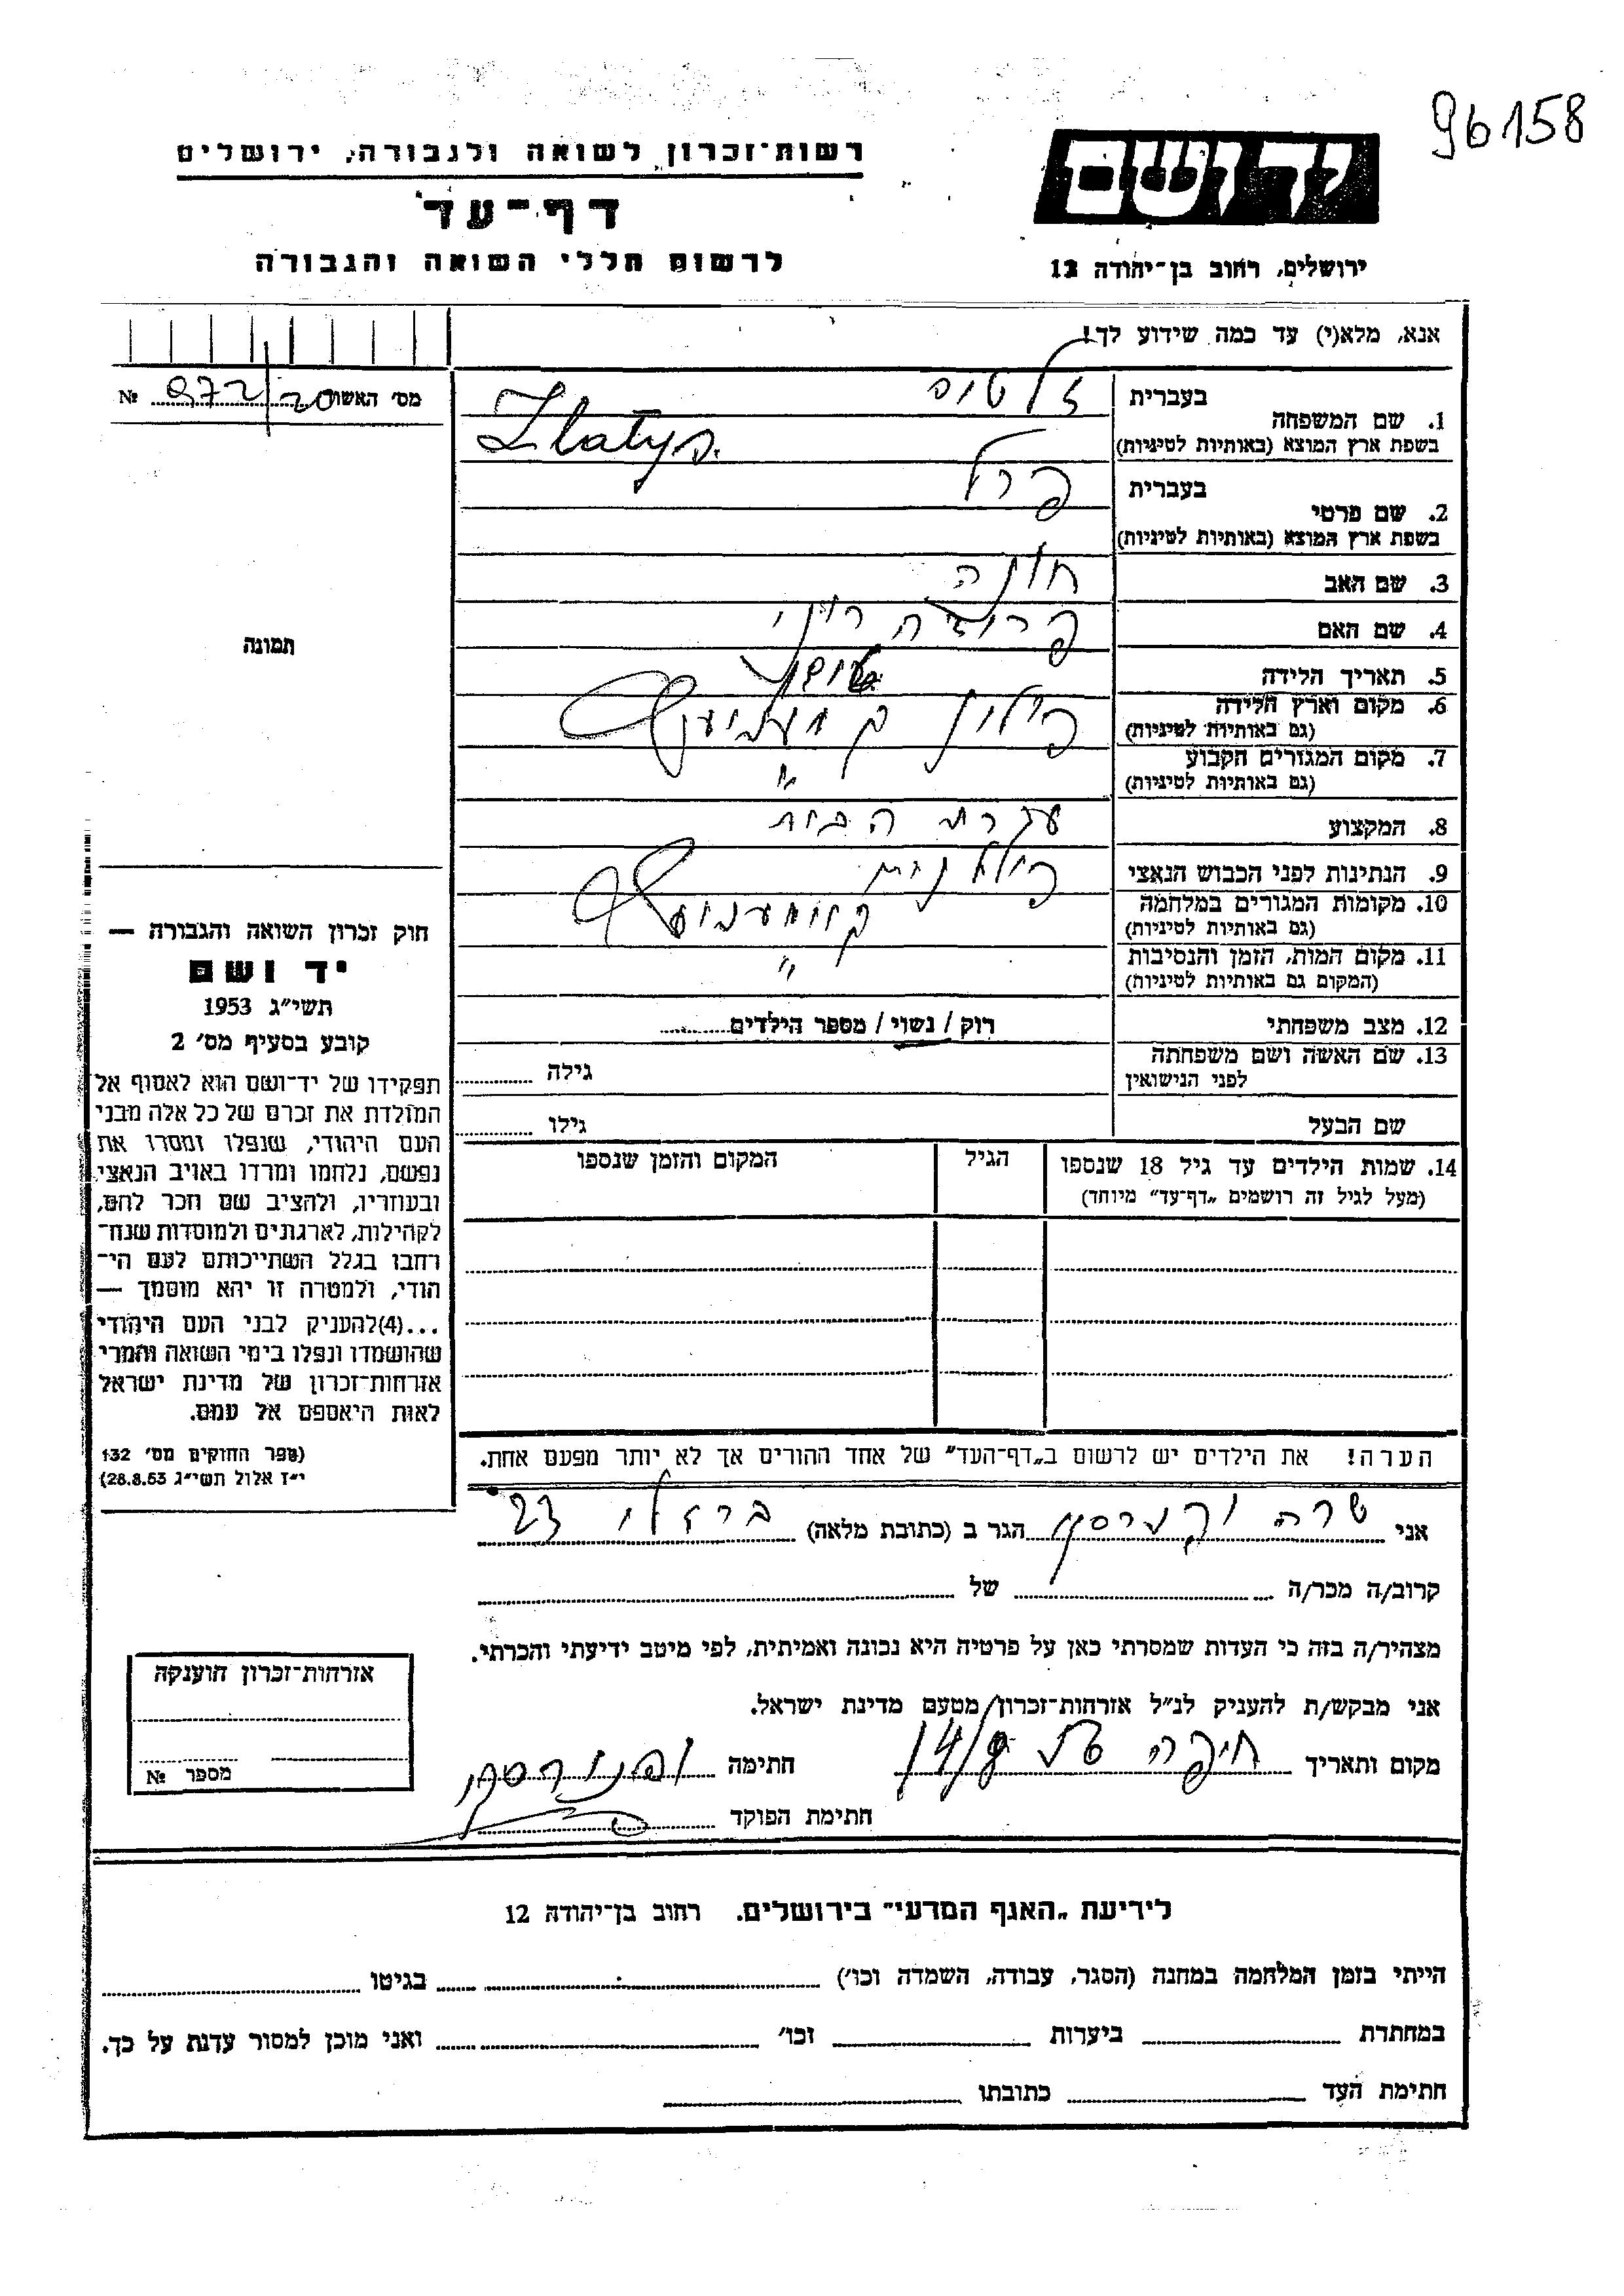 96158
יד ושם
רשות־זכרון לשואה ולגבורה, ירושלים
דף־עד
לרשום חללי השואה והגבורה
ירושלים, רחוב בן־יהודה 12
אנא, מלא(י) עד כמה שידוע לך!
מס׳ האשור 972/20 №
1. שם המשפחה
בעברית
בשפת ארץ המוצא (באותיות לטיניות)
Zlatys
2. שם פרטי
בעברית פרל
בשפת ארץ המוצא (באותיות לטיניות)
3. שם האב חונה
4. שם האם
5. תאריך הלידה
6. מקום וארץ הלידה פולין
(גם באותיות לטיניות)
7. מקום המגורים הקבוע "
(גם באותיות לטיניות)
8. המקצוע עקרת הבית
9. הנתינות לפני הכבוש הנאצי פולנית
10. מקומות המגורים במלחמה
(גם באותיות לטיניות)
11. מקום המות, הזמן והנסיבות "
(המקום גם באותיות לטיניות)
12. מצב משפחתי רוק / נשוי / מספר הילדים
13. שם האשה ושם משפחתה
לפני הנישואין גילה
שם הבעל גילו
14. שמות הילדים עד גיל 18 שנספו
(מעל לגיל זה רושמים „דף־עד״ מיוחד)
הגיל
המקום והזמן שנספו
הערה! את הילדים יש לרשום ב„דף־העד״ של אחד ההורים אך לא יותר מפעם אחת.
תמונה
חוק זכרון השואה והגבורה —
יד ושם
תשי״ג 1953
קובע בסעיף מס׳ 2
תפקידו של יד־ושם הוא לאסוף אל
המולדת את זכרם של כל אלה מבני
העם היהודי, שנפלו ומסרו את
נפשם, נלחמו ומרדו באויב הנאצי
ובעוזריו, ולהציב שם וזכר להם,
לקהילות, לארגונים ולמוסדות שנח־
רבו בגלל השתייכותם לעם הי־
הודי, ולמטרה זו יהא מוסמך —
...(4)להעניק לבני העם היהודי
שהושמדו ונפלו בימי השואה והמרי
אזרחות־זכרון של מדינת ישראל
לאות היאספם אל עמם.
(ספר החוקים מס׳ 132
י״ז אלול תשי״ג 28.8.53)
אני שרה הגר ב (כתובת מלאה) ברזלי 23
קרוב/ה מכר/ה של
מצהיר/ה בזה כי העדות שמסרתי כאן על פרטיה היא נכונה ואמיתית, לפי מיטב ידיעתי והכרתי.
אני מבקש/ת להעניק לנ״ל אזרחות־זכרון מטעם מדינת ישראל.
מקום ותאריך חיפה 14/9 חתימה
חתימת הפוקד
אזרחות־זכרון הוענקה
מספר №
לידיעת „האגף המדעי״ בירושלים. רחוב בן־יהודה 12
הייתי בזמן המלחמה במחנה (הסגר, עבודה, השמדה וכו׳) בגיטו
במחתרת ביערות וכו׳ ואני מוכן למסור עדות על כך.
חתימת העד כתובתו